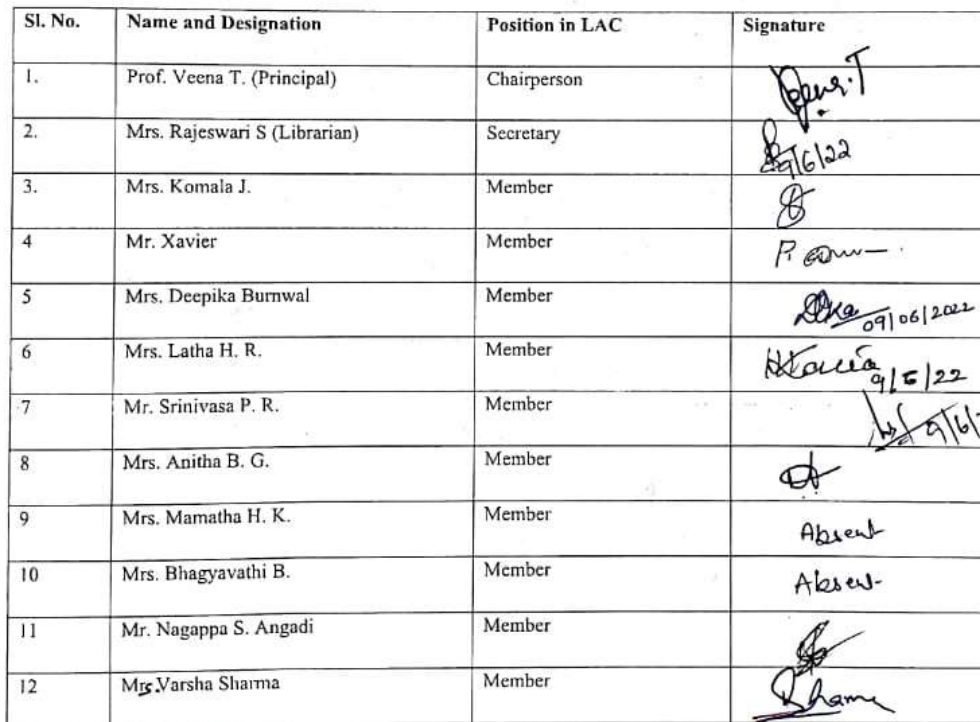 Sl. No. Name and Designation Position in LAC Signature
1. Prof. Veena T. (Principal) Chairperson
2. Mrs. Rajeswari S (Librarian) Secretary 9/6/22
3. Mrs. Komala J. Member
4 Mr. Xavier Member
5 Mrs. Deepika Burnwal Member 09/06/2022
6 Mrs. Latha H. R. Member 9/6/22
7 Mr. Srinivasa P. R. Member 9/6/
8 Mrs. Anitha B. G. Member
9 Mrs. Mamatha H. K. Member Absent
10 Mrs. Bhagyavathi B. Member Absent
11 Mr. Nagappa S. Angadi Member
12 Mrs. Varsha Sharma Member